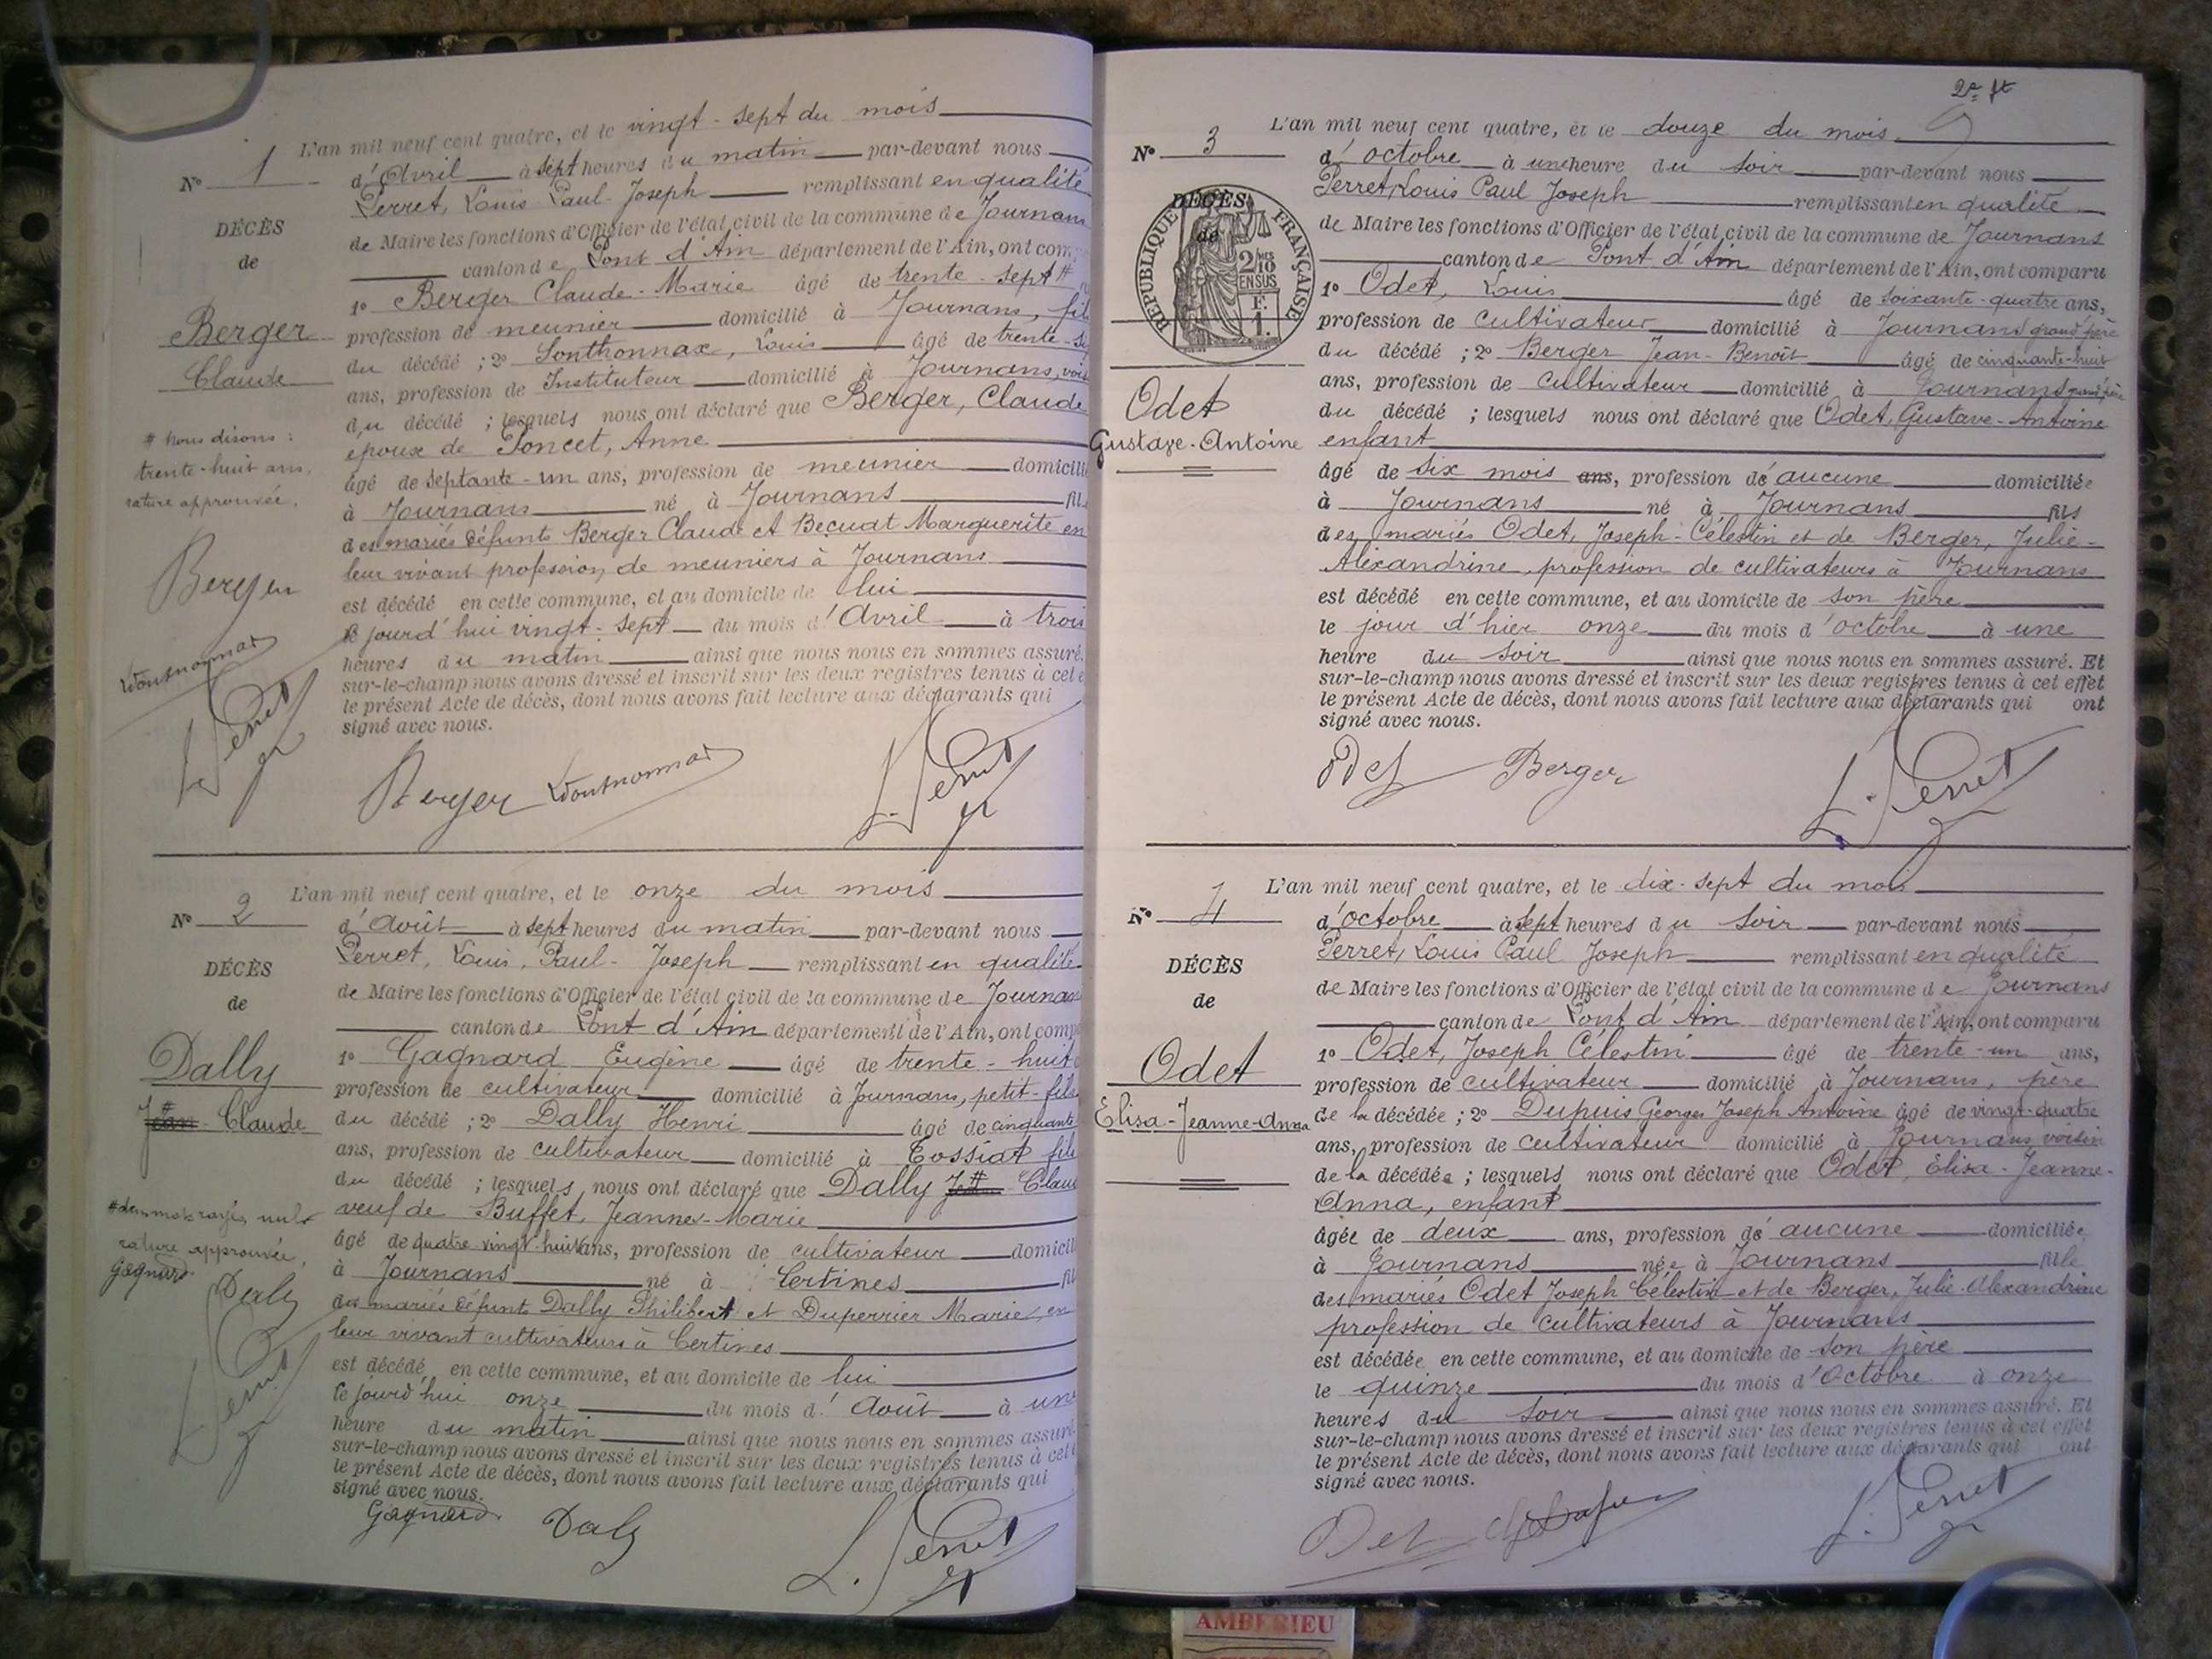 L'an mil neuf cent quatre, et le vingt-sept du mois
N° 1
d'Avril à sept heures du matin par-devant nous
Perret, Louis Paul Joseph remplissant en qualité
DÉCÈS
de Maire les fonctions d'Officier de l'état civil de la commune de Journans
de
canton de Pont d'Ain département de l'Ain, ont com
1° Berger Claude-Marie âgé de trente-sept #
Berger
profession de meunier domicilié à Journans, fils
Claude
du décédé ; 2° Sonthonnax, Louis âgé de trente-
ans, profession de Instituteur domicilié à Journans, voisin
du décédé ; lesquels nous ont déclaré que Berger, Claude
époux de Poncet, Anne
# nous disons :
trente-huit ans,
rature approuvée.
âgé de septante-un ans, profession de meunier domicilié
à Journans né à Journans fils
des mariés défunts Berger Claude et Becuat Marguerite en
leur vivant profession de meuniers à Journans
Berger
est décédé en cette commune, et au domicile de lui
ce jourd'hui vingt-sept du mois d'Avril à trois
heures du matin ainsi que nous nous en sommes assuré.
sur-le-champ nous avons dressé et inscrit sur les deux registres tenus à cet e
le présent Acte de décès, dont nous avons fait lecture aux déclarants qui
signé avec nous.
L. Perret
Berger LSonthonnax L. Perret
L'an mil neuf cent quatre, et le onze du mois
N° 2
d'Août à sept heures du matin par-devant nous
Perret, Louis, Paul-Joseph remplissant en qualité
DÉCÈS
de Maire les fonctions d'Officier de l'état civil de la commune de Journans
de
canton de Pont d'Ain département de l'Ain, ont comp
1° Gagnard Eugène âgé de trente-huit
Dally
profession de cultivateur domicilié à Journans, petit-fils
Jean-Claude
du décédé ; 2° Dally Henri âgé de cinquante
ans, profession de cultivateur domicilié à Tossiat fils
du décédé ; lesquels nous ont déclaré que Dally Jean-Claude
veuf de Buffet, Jeanne-Marie
rature approuvée,
Gagnard
Daly
L. Perret
âgé de quatre vingt-huit ans, profession de cultivateur domicilié
à Journans né à Certines fils
des mariés défunts Dally Philibert et Duperrier Marie, en
leur vivant cultivateurs à Certines
est décédé en cette commune, et au domicile de lui
ce jourd'hui onze du mois d'Août à une
heure du matin ainsi que nous nous en sommes assuré.
sur-le-champ nous avons dressé et inscrit sur les deux registres tenus à cet
le présent Acte de décès, dont nous avons fait lecture aux déclarants qui
signé avec nous.
Gagnard Daly L. Perret
L'an mil neuf cent quatre, et le douze du mois
N° 3
d'octobre à une heure du soir par-devant nous
Perret, Louis Paul Joseph remplissant en qualité
DÉCÈS
de
RÉPUBLIQUE FRANÇAISE
2/10 EN SUS
F. 1.
de Maire les fonctions d'Officier de l'état civil de la commune de Journans
canton de Pont d'Ain département de l'Ain, ont comparu
1° Odet, Louis âgé de soixante-quatre ans,
profession de cultivateur domicilié à Journans grand père
du décédé ; 2° Berger Jean-Benoît âgé de cinquante-huit
ans, profession de cultivateur domicilié à Journans grand père
Odet
du décédé ; lesquels nous ont déclaré que Odet, Gustave-Antoine
Gustave-Antoine
enfant
âgé de six mois ans, profession de aucune domicilié
à Journans né à Journans fils
des mariés Odet, Joseph-Célestin et de Berger, Julie-
Alexandrine, profession de cultivateurs à Journans
est décédé en cette commune, et au domicile de son père
le jour d'hier onze du mois d'octobre à une
heure du soir ainsi que nous nous en sommes assuré. Et
sur-le-champ nous avons dressé et inscrit sur les deux registres tenus à cet effet
le présent Acte de décès, dont nous avons fait lecture aux déclarants qui ont
signé avec nous.
Odet Berger L. Perret
L'an mil neuf cent quatre, et le dix-sept du mois
N° 4
d'octobre à sept heures du soir par-devant nous
Perret, Louis Paul Joseph remplissant en qualité
DÉCÈS
de Maire les fonctions d'Officier de l'état civil de la commune de Journans
de
canton de Pont d'Ain département de l'Ain, ont comparu
1° Odet, Joseph Célestin âgé de trente-un ans,
Odet
profession de cultivateur domicilié à Journans, père
Elisa-Jeanne-Anna
de la décédée ; 2° Dupuis, Georges Joseph Antoine âgé de vingt-quatre
ans, profession de cultivateur domicilié à Journans, voisin
de la décédée ; lesquels nous ont déclaré que Odet, Elisa-Jeanne-
Anna, enfant
âgée de deux ans, profession de aucune domiciliée
à Journans née à Journans fille
des mariés Odet Joseph Célestin et de Berger, Julie-Alexandrine
profession de cultivateurs à Journans
est décédée en cette commune, et au domicile de son père
le quinze du mois d'Octobre à onze
heures du soir ainsi que nous nous en sommes assuré. Et
sur-le-champ nous avons dressé et inscrit sur les deux registres tenus à cet effet
le présent Acte de décès, dont nous avons fait lecture aux déclarants qui ont
signé avec nous.
Odet L. Perret
AMBERIEU